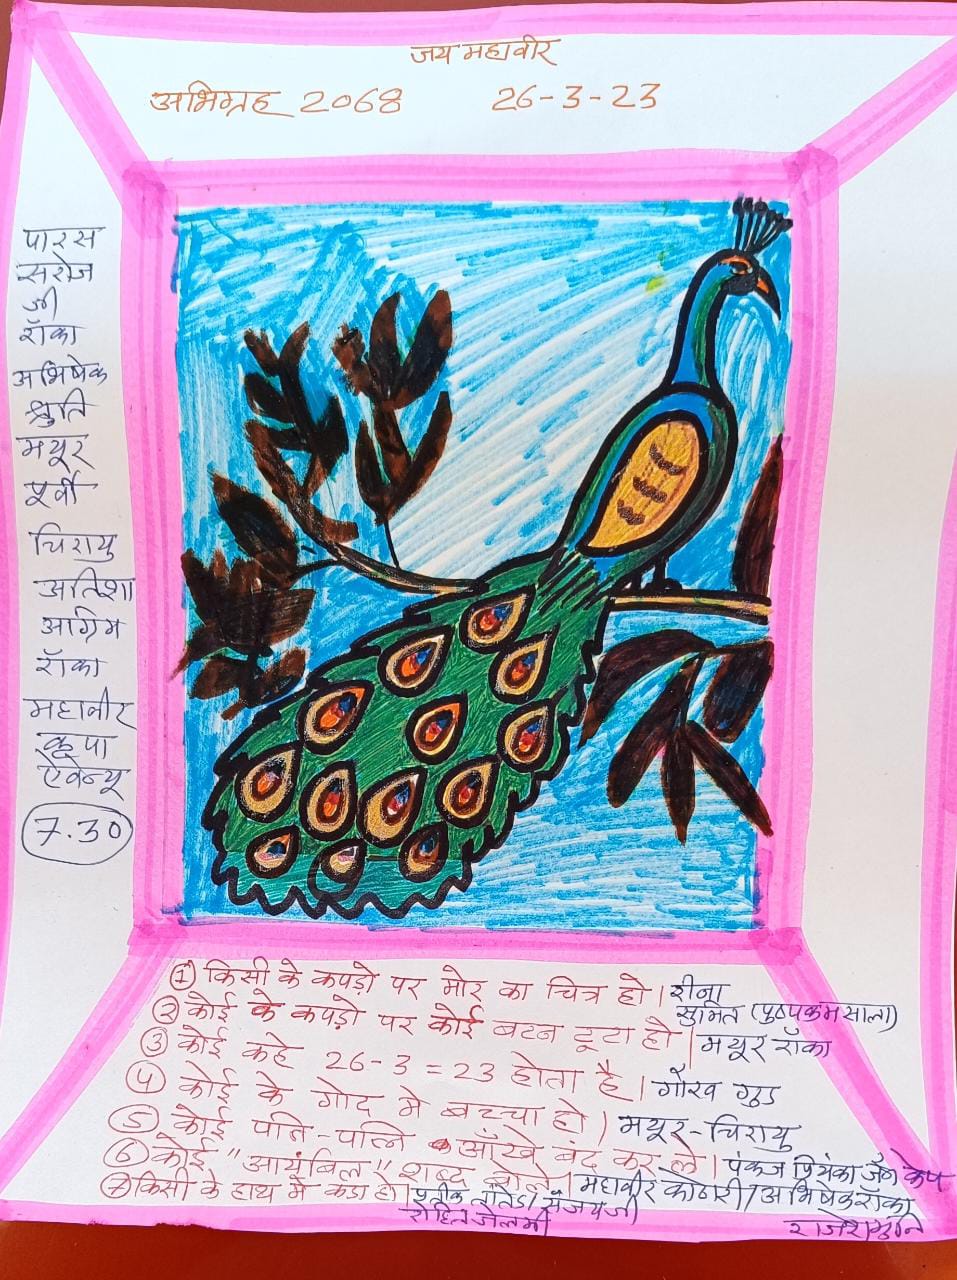 जय महावीर
अभिग्रह 2068 26-3-23
पारस
सरोज
जी
राॅंका
अभिषेक
श्रुति
मयूर
पूर्वी
चिरायु
अतिशा
आग्रिम
राॅंका
महावीर
कृपा
ऐवेन्यू
7.30
① किसी के कपड़ो पर मोर का चित्र हो। रीना
सुमित (पुष्पकमसाला)
② कोई के कपड़ो पर कोई बटन टूटा हो। मयूर राॅंका
③ कोई कहे 26-3=23 होता है। गौरव
④ कोई के गोद मे बच्चा हो। मयूर-चिरायु
⑤ कोई पति-पत्नि आँखे बंद कर ले। पंकज प्रियंका जैन
⑥ कोई "आयंबिल" शब्द बोले। महावीर कोठारी/अभिषेक राॅंका
⑦ किसी के हाथ मे कडा हो। प्रतीक संजयजी
रोहित